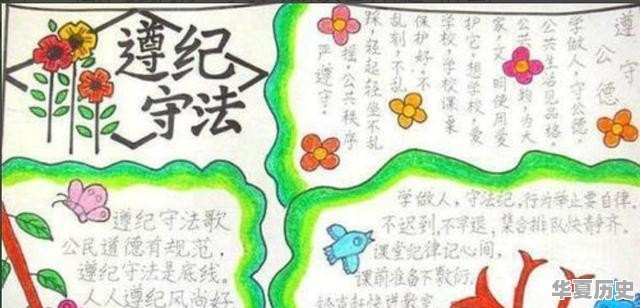 遵纪
守法
遵公德
学做人，守公德，
公共生活见品格。
公共财物，为大
家，文明使用爱
护它，想学校，爱
学校，学校课桌
保护好。不
乱刻，不乱
踩，轻起轻坐不乱
摇，公共秩序
严遵守。
遵纪守法歌
公民道德有规范，
遵纪守法是底线。
人人遵纪风尚好
学做人，守法纪，行为举止要自律，
不迟到，不早退，集合排队快静齐。
课堂纪律记心间，
课前准备不敷衍，
华夏历史